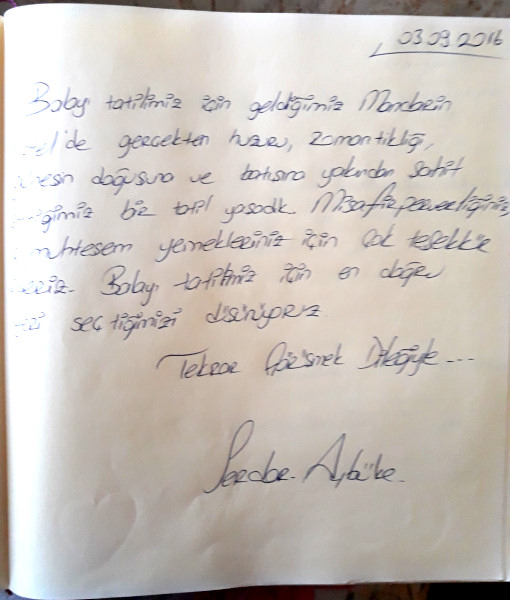 03.09.2016
Balayı tatilimiz için geldiğimiz Mandarin
de gerçekten huzuru, romantikliği,
doğusuna ve batısına yakından şahit
bir tatil yaşadık. Misafirperverliğiniz
muhteşem yemekleriniz için çok teşekkür
Balayı tatilimiz için en doğru
seçtiğimizi düşünüyoruz.
Tekrar Görüşmek Dileğiyle ...
Serdar